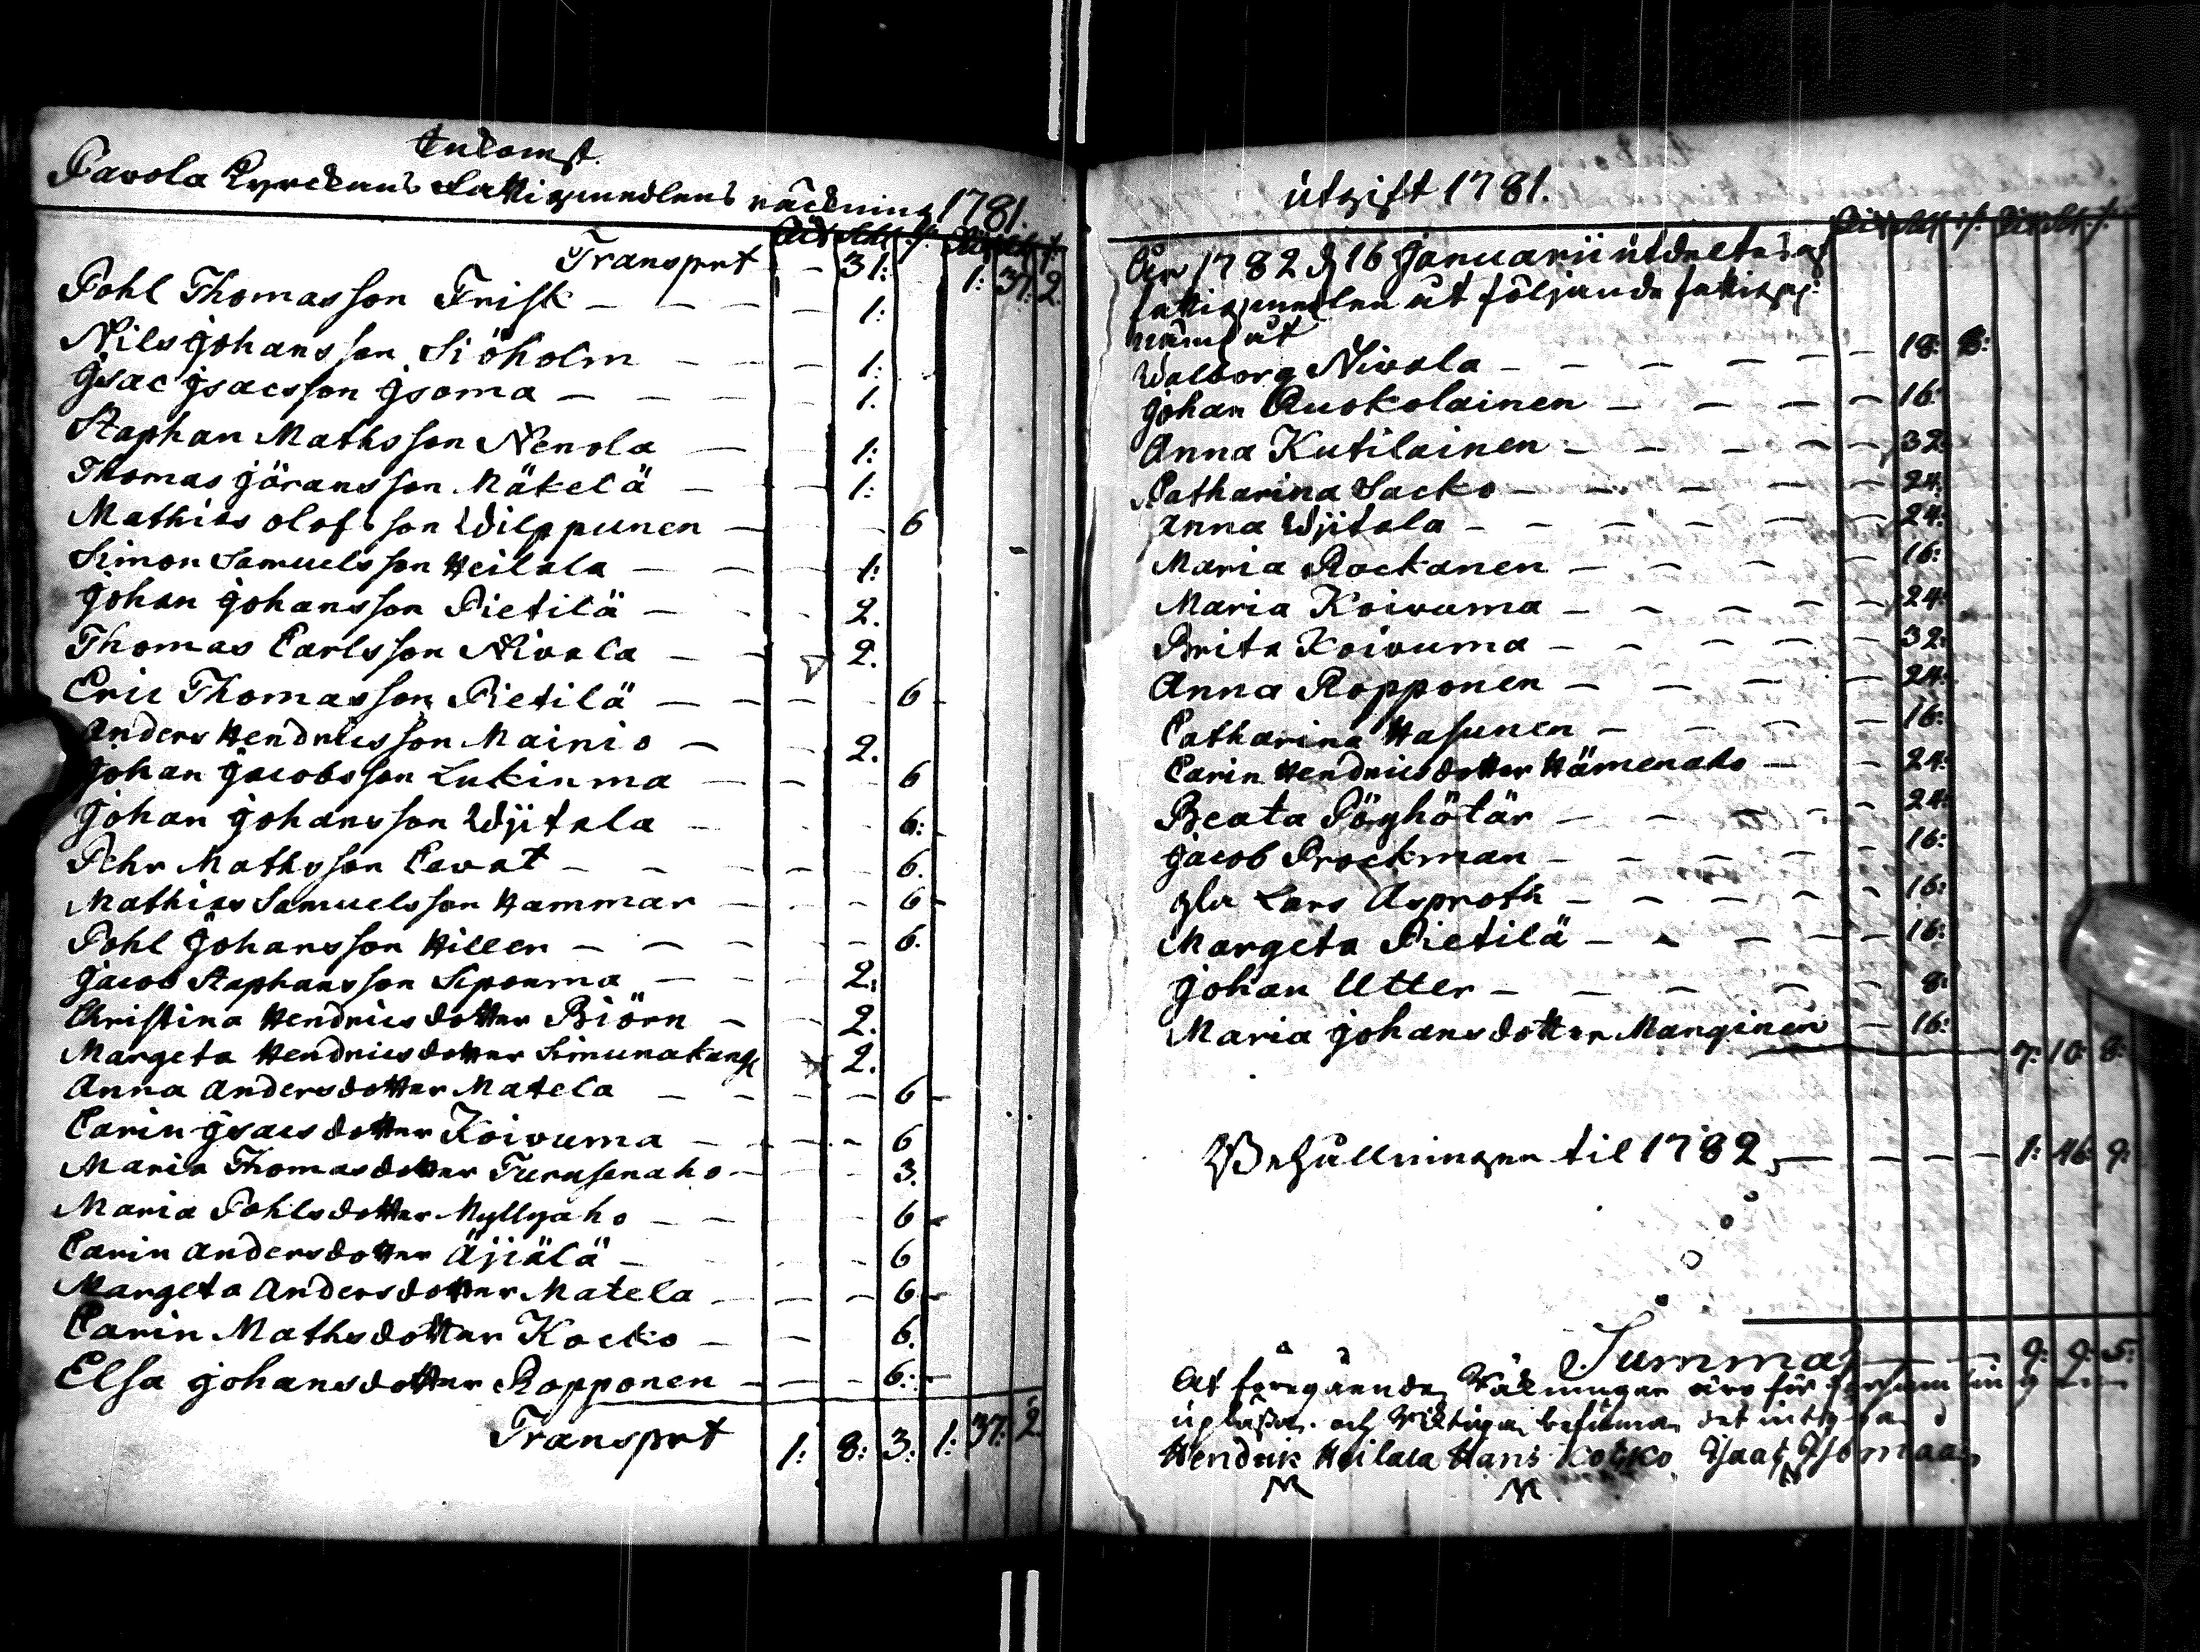 Inkomst.
Pavola Kyrckans Fattigmedlens räckning 1781.
Transprt - 31: 1: 37: 2.
Pohl Thomasson Frisk - - - - 1:
Nils Johansson Siöholm - - - 1:
Isac Isacsson Isoma - - - 1.
Staphan Mathsson Nenola - - 1:
Thomas Göransson Mäkelä - - 1:
Mathies Olofsson Wilppunen - - - 6
Simon Samuelsson Heilala - - - 1:
Johan Johansson Pietilä - - - 2.
Thomas Carlsson Nivala - - 2.
Eric Thomasson Pietilä - - - - 6
Anders Hendricsson Mainio - - 2.
Johan Jacobsson Lukinma - - - 6
Johan Johansson Wjitala - - - 6:
Pehr Mathsson Cavat - - - - 6.
Mathies Samuelsson Hammar - - - 6
Pohl Johansson Hiller - - - - 6.
Jacob Staphansson Siponma - - - 2.
Christina Hendricsdotter Biörn - - 2.
Margeta Hendricsdotter Simunakang 2.
Anna Andersdotter Matela - - - - 6
Carin Isacsdotter Koivuma - - - 6
Maria Thomasdotter Turusenaho - - - 3.
Maria Pohlsdotter Myllyaho - - - - 6
Carin Andersdotter Äjiälä - - - 6
Margeta Andersdotter Matela - - - 6
Carin Mathsdotter Kocko - - 6.
Elsa Johansdotter Ropponen - - - 6:
Transprt 1: 8: 3: 1: 37: 2
Utgift 1781.
År 1782 d 16 Januarii utdeltes af
fattigmedlen åt följande fattige
nämt
Walborg Nivala - - - - 18: 8:
Johan Ruokolainen - - - - 16:
Anna Kutilainen - - - - 32
Catharina Sacko - - - - 24:
Anna Wjitala - - - - 24:
Maria Rockanen - - - - 16:
Maria Koivuma - - - - 24:
Brita Koivuma - - - - 32:
Anna Ropponen - - - - 24:
Catharina Hasunen - - - - 16:
Carin Hendricsdotter Hämenaho - - 24:
Beata Pöyhötär - - - - 24:
Jacob Brockman - - - - 16:
gla Lars Asproth - - - - 16:
Margeta Pietilä - - - - 16:
Johan Utter - - - - 8:
Maria Johansdotter Manginen - 16:
7: 10: 8:
Behållningen til 1782 - - - - 1: 46: 9:
Summa - - - 9: 9: 5:
At föregående Räkningar äro för
uplästa och Riktiga befundna det
Hendrik Heilala Hans Kocko Isaac Isomaa